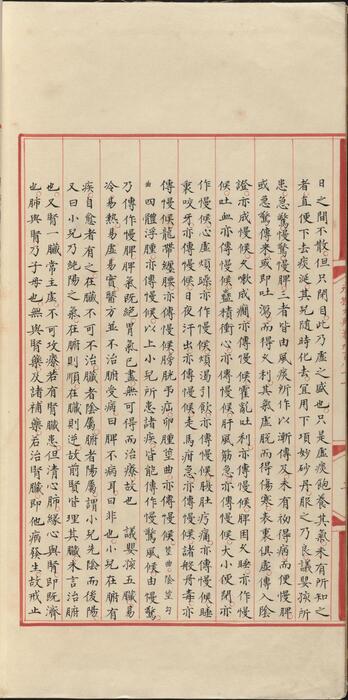 日之間不散但只閉目此乃虛之盛也只是虛痰飽養其氣未有所知之
者直便下去痰涎其兒隨時化去宜用下項妙砂丹服之乃良議嬰孩所
患急驚慢驚慢脾三者皆由風疾所作以漸傳及未有初得病而便慢脾
或急驚傳來或即吐瀉而得久利其氣虛脫而得傷寒表裏俱虛傳入陰
證亦成慢候久嗽成癇亦傳慢候霍亂吐利亦傳慢候脾困久睡亦作慢
候吐血亦傳慢候蠱積衝心亦傳慢候肝風筋急亦傳慢候大小便閉亦
作慢候心虛煩躁亦作慢候煩渴引飲亦傳慢候腹肚疼痛亦傳慢候睡
裏咬牙亦傳慢候日夜汗出亦傳慢候走馬疳急亦傳慢候諸般丹毒亦
傳慢候龍帶纏腰亦傳慢候膀胱弔疝卵腫莖曲亦傳慢候莖曲陰莖勾
曲四體浮腫亦傳慢候以上小兒所患諸疾皆能傳作慢驚風候由慢驚
乃傳作慢脾脾氣既絕胃氣已盡無可得而治療故也 議嬰孩五臟易
冷易熱易虛易實醫方並不治腑受病曰脾不病耳曰非也小兒在腑有
疾自愈者有之在臟不可不治臟者陰屬腑者陽屬謂小兒先陰而後陽
又曰小兒乃純陽之氣在腑則順在臟則逆故前賢皆理其臟未言治腑
也又腎一臟常主虛不可攻療若有腎臟患但清心肺緣心與腎即既濟
也肺與腎乃子母也無與腎藥及諸補藥若治腎臟即他病發生故戒止